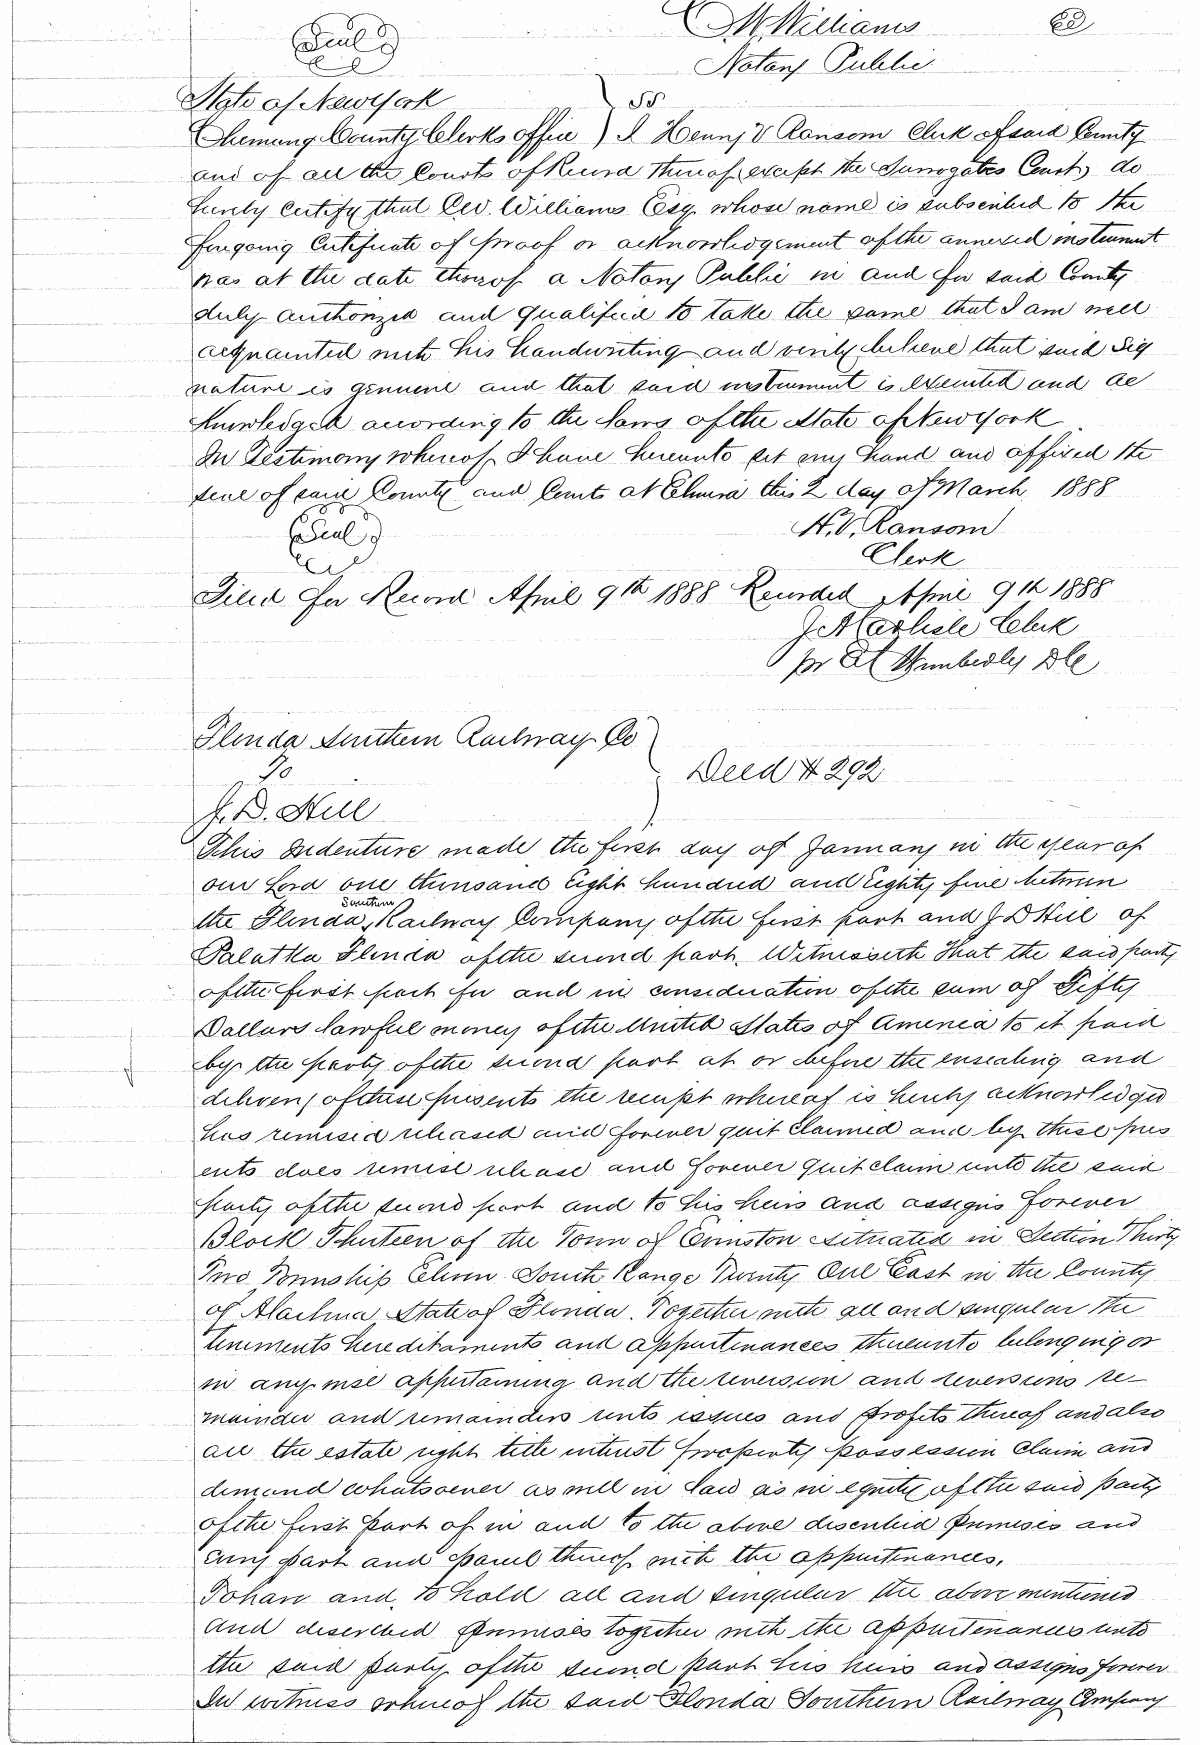 M Williams 62
Seal
Notary Public
State of New York ) SS
Chemung County Clerks office ) I Henry V Ransom Clerk of said County
and of all the Courts of Record thereof, except the Surrogates Court, do
hereby certify that Williams Esq. whose name is subscribed to the
foregoing certificate of proof or acknowledgement of the annexed instrument
was at the date thereof a Notary Public in and for said County
duly authorized and qualified to take the same that I am well
acquainted with his handwriting and verily believe that said Sig
nature is genuine and that said instrument is executed and ac
knowledged according to the laws of the State of New York
In Testimony whereof I have hereunto set my hand and affixed the
seal of said County and Courts at Elmira this 2 day of March 1888
Seal
H. V. Ransom
Clerk
Filed for Record April 9th 1888 Recorded April 9th 1888
J A Carlisle Clerk
pr Wimberly D C
Florida Southern Railway Co
To
Deed # 292
J. D. Hill
This Indenture made the first day of January in the year of
our Lord one thousand Eight hundred and Eighty five between
the Florida Southern Railway Company of the first part and J D Hill of
Palatka Florida of the second part. Witnesseth That the said party
of the first part for and in consideration of the sum of Fifty
Dollars lawful money of the United States of America to it paid
by the party of the second part at or before the ensealing and
delivery of these presents the receipt whereof is hereby acknowledged
has remised released and forever quit claimed and by these pres
ents does remise release and forever quit claim unto the said
party of the second part and to his heirs and assigns forever
Block Thirteen of the Town of Evinston situated in Section Thirty
Two Township Eleven South Range Twenty One East in the County
of Alachua State of Florida. Together with all and singular the
tenements hereditaments and appurtenances thereunto belonging or
in any wise appertaining and the reversion and reversions re-
mainder and remainders rents issues and profits thereof and also
all the estate right title interest property possession claim and
demand whatsoever as well in law as in equity of the said party
of the first part of in and to the above described premises and
any part and parcel thereof with the appurtenances.
To have and to hold all and singular the above mentioned
and described premises together with the appurtenances unto
the said party of the second part his heirs and assigns forever
In witness whereof the said Florida Southern Railway Company